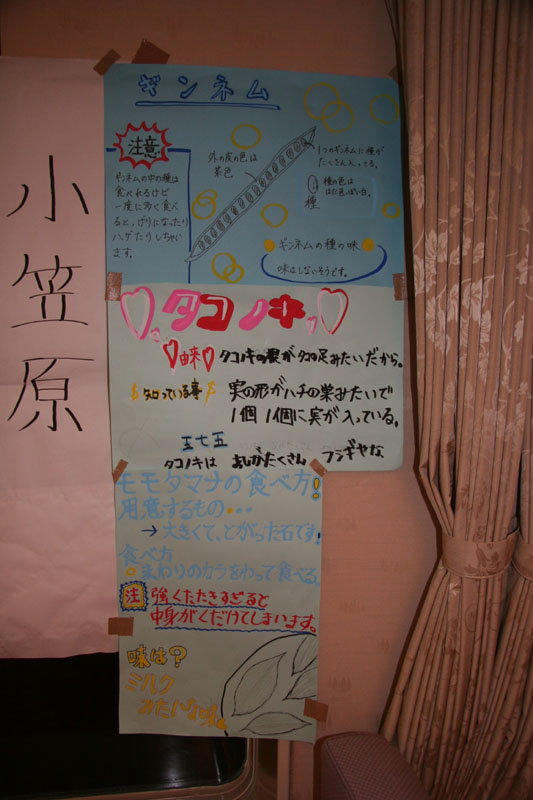 小笠原
ギンネム
注意
ギンネムの中の種は
食べれるけど
一度に多く食べ
ると、げりになったり
ハゲたりしちゃい
ます。
外の皮の色は
茶色
1つのギンネムに種が
たくさん入ってる。
種
種の色は
はだ色っぽい白。
ギンネムの種の味
味はしないそうです。
タコノキ
由来
タコノキの根がタコの足みたいだから。
知っている事
実の形がハチの巣みたいで
1個1個に実が入っている。
五七五
タコノキは あしがたくさん フシギヤな
モモタマナの食べ方!
用意するもの・・・
→大きくて、とがった石です!
食べ方
まわりのカラをわって食べる。
注 強くたたきすぎると
中身がくだけてしまいます。
味は?
ミルク
みたいな味。